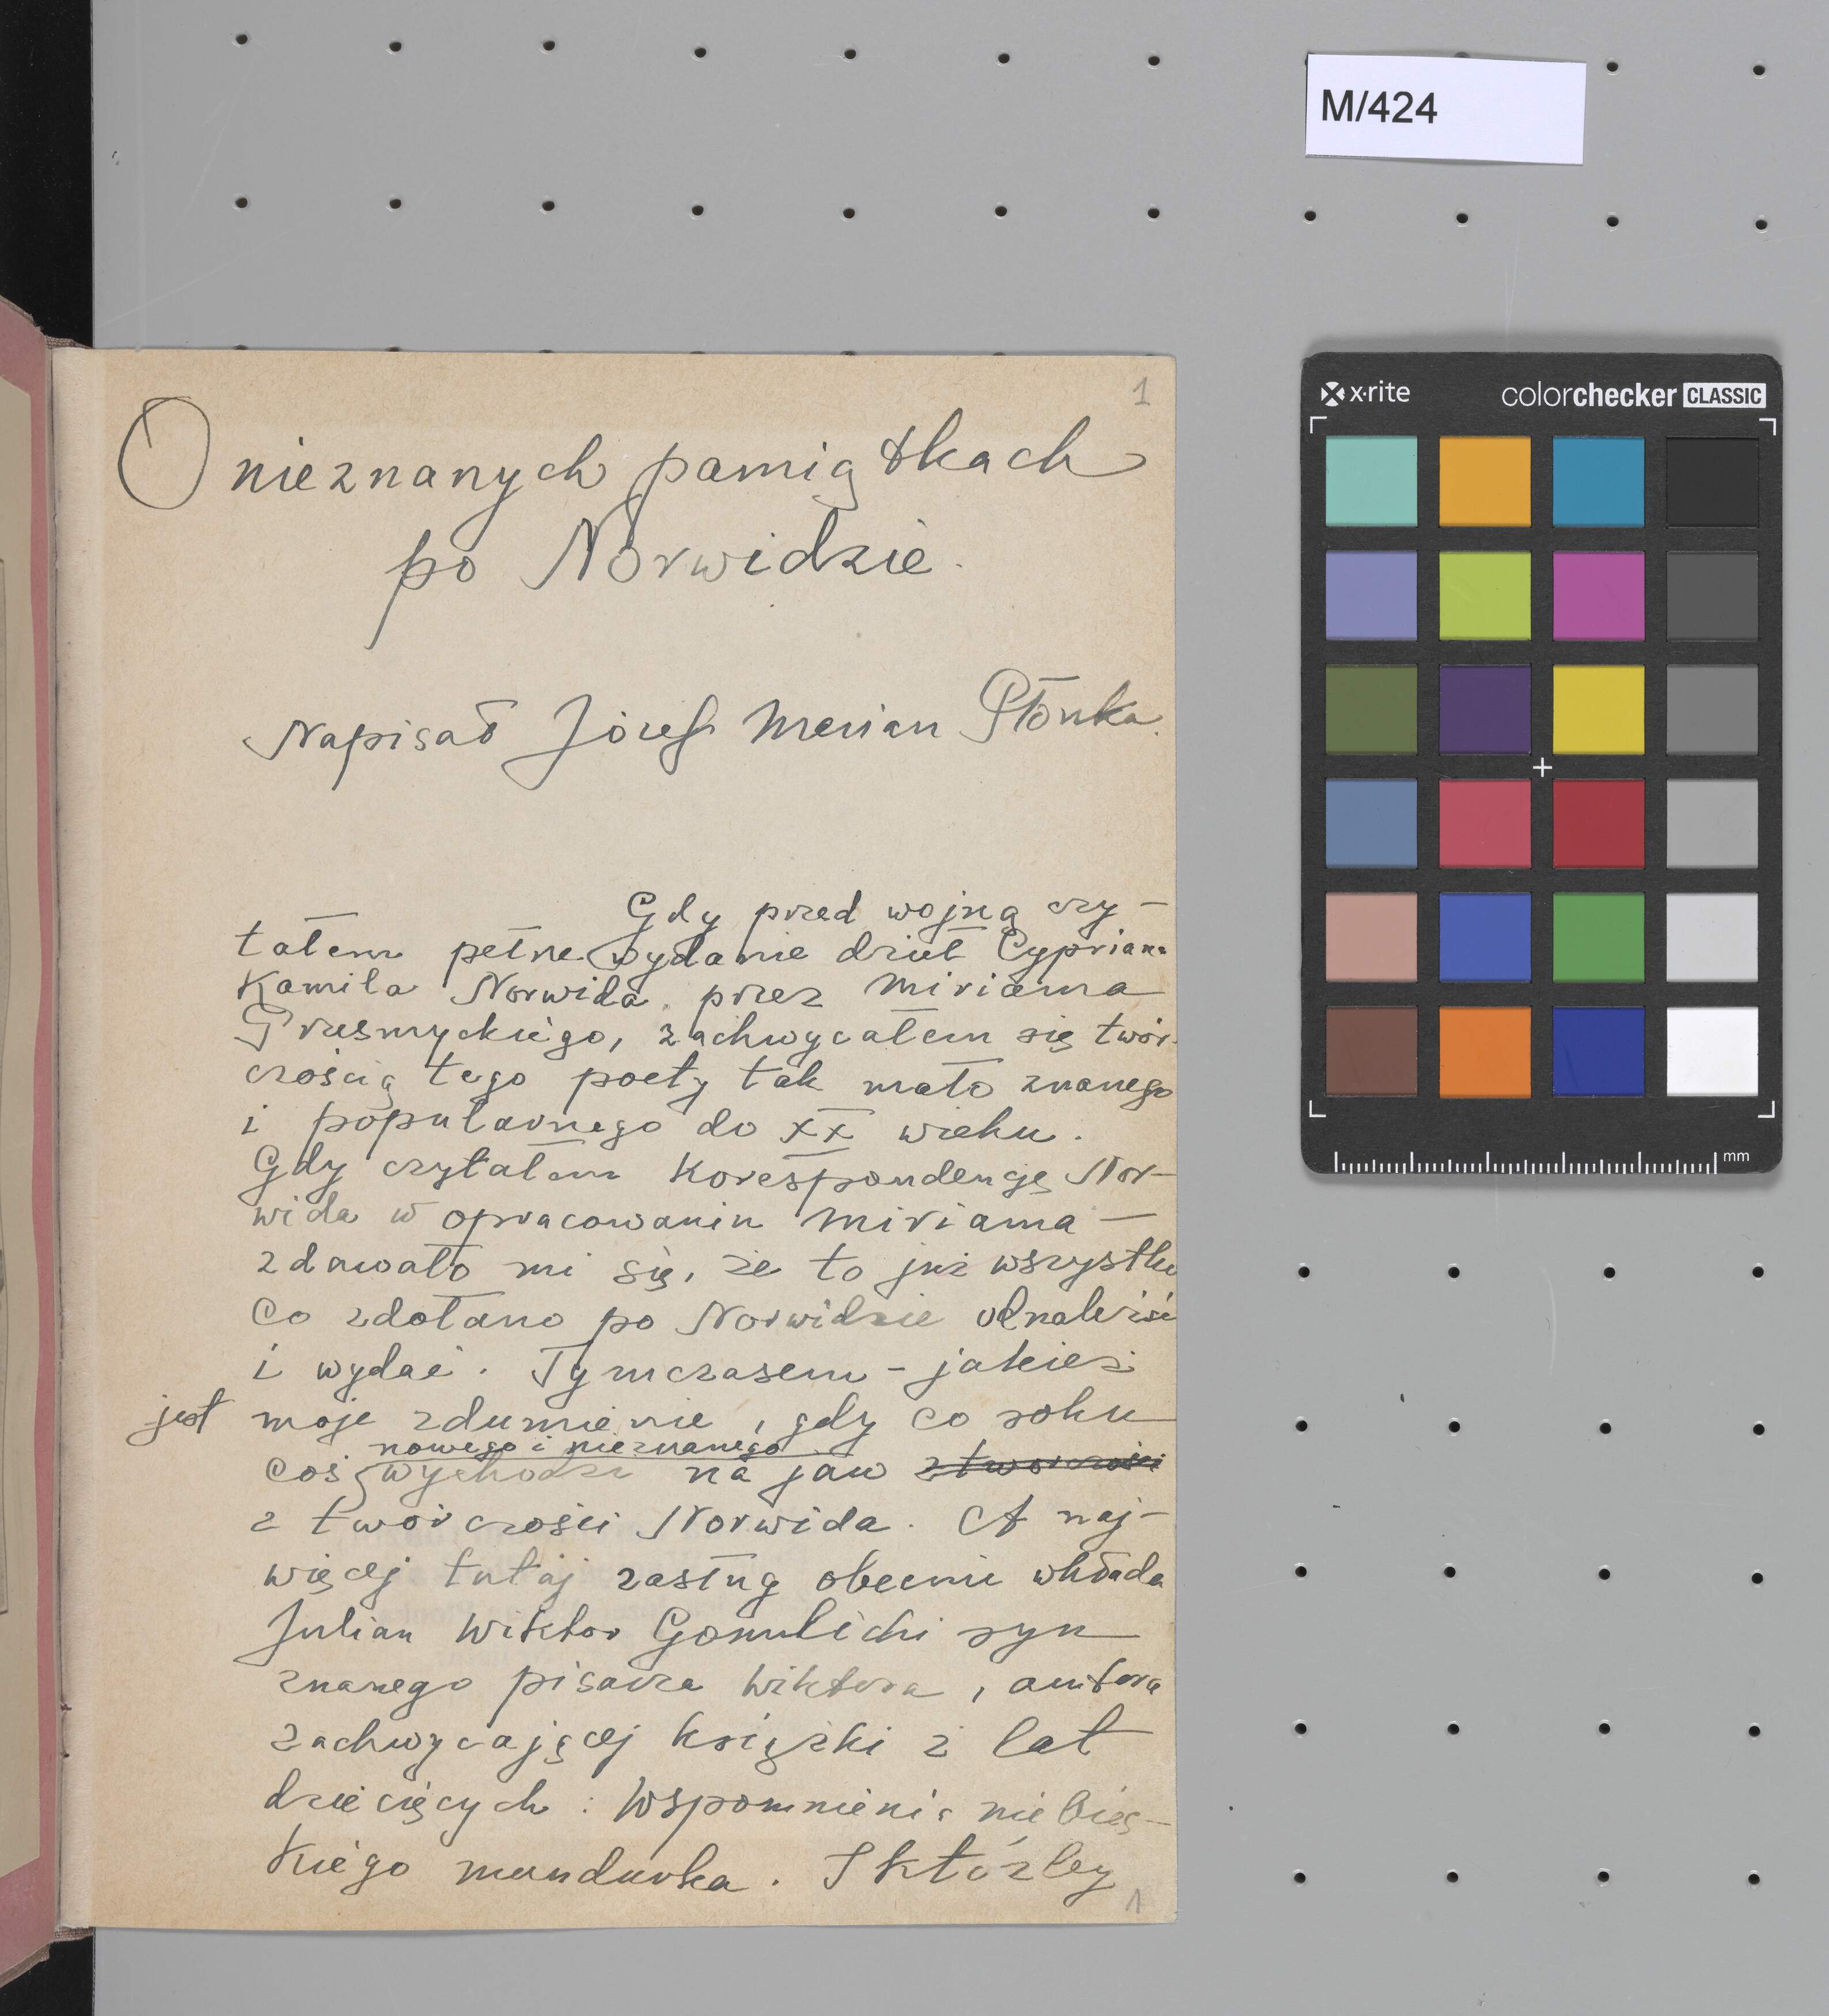 M/424
x·rite colorchecker CLASSIC
mm
1
O nieznanych pamiątkach
po Norwidzie.
Napisał Józef Marian Płonka.
Gdy przed wojną czy-
tałem pełne wydanie dzieł Cypriana
Kamila Norwida przez Miriama
Przesmyckiego, zachwycałem się twór-
czością tego poety tak mało znanego
i popularnego do XX wieku.
Gdy czytałem korespondencję Nor-
wida w opracowaniu Miriama —
zdawało mi się, że to już wszystko
co zdołano po Norwidzie odnaleźć
i wydać. Tymczasem - jakież
jest moje zdumienie, gdy co roku
nowego i nieznanego
coś wychodzi na jaw z twórczości
z twórczości Norwida. A naj-
więcej tutaj zasług obecnie wkłada
Julian Wiktor Gomulicki syn
znanego pisarza Wiktora, autora
zachwycającej książki z lat
dziecięcych: Wspomnienia niebies-
kiego mundurka. I któżby
1